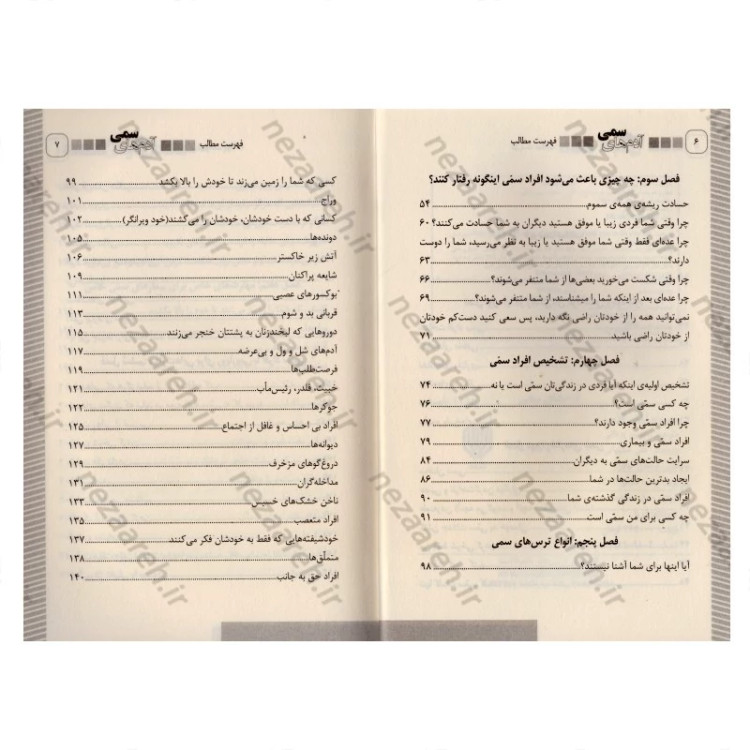 ۶ آدم‌های سمی فهرست مطالب
فصل سوم: چه چیزی باعث می‌شود افراد سمّی اینگونه رفتار کنند؟
حسادت ریشه‌ی همه‌ی سموم ........ ۵۴
چرا وقتی شما فردی زیبا یا موفق هستید دیگران به شما حسادت می‌کنند؟ ۶۰
چرا عده‌ای فقط وقتی شما موفق هستید یا زیبا به نظر می‌رسید، شما را دوست
دارند؟ ........ ۶۳
چرا وقتی شکست می‌خورید بعضی‌ها از شما متنفر می‌شوند؟ ........ ۶۶
چرا عده‌ای بعد از اینکه شما را میشناسند، از شما متنفر می‌شوند؟ ........ ۶۹
نمی‌توانید همه را از خودتان راضی نگه دارید، پس سعی کنید دست‌کم خودتان
از خودتان راضی باشید ........ ۷۱
فصل چهارم: تشخیص افراد سمّی
تشخیص اولیه‌ی اینکه آیا فردی در زندگی‌تان سمّی است یا نه ........ ۷۴
چه کسی سمّی است؟ ........ ۷۶
چرا افراد سمّی وجود دارند؟ ........ ۷۷
افراد سمّی و بیماری ........ ۷۹
سرایت حالت‌های سمّی به دیگران ........ ۸۴
ایجاد بدترین حالت‌ها در شما ........ ۸۶
افراد سمّی در زندگی گذشته‌ی شما ........ ۹۰
چه کسی برای من سمّی است ........ ۹۱
فصل پنجم: انواع ترس‌های سمی
آیا اینها برای شما آشنا نیستند؟ ........ ۹۸
فهرست مطالب آدم‌های سمی ۷
کسی که شما را زمین می‌زند تا خودش را بالا بکشد ........ ۹۹
وراج ........ ۱۰۱
کسانی که با دست خودشان، خودشان را می‌کشند(خود ویرانگر) ........ ۱۰۲
دونده‌ها ........ ۱۰۵
آتش زیر خاکستر ........ ۱۰۶
شایعه پراکنان ........ ۱۰۹
بوکسورهای عصبی ........ ۱۱۱
قربانی بد و شوم ........ ۱۱۳
دوروهایی که لبخندزنان به پشتتان خنجر می‌زنند ........ ۱۱۵
آدم‌های شل و ول و بی‌عرضه ........ ۱۱۷
فرصت‌طلب‌ها ........ ۱۱۹
خبیث، قلدر، رئیس‌مآب ........ ۱۲۱
جوکرها ........ ۱۲۲
افراد بی احساس و غافل از اجتماع ........ ۱۲۵
دیوانه‌ها ........ ۱۲۷
دروغ‌گوهای مزخرف ........ ۱۲۹
مداخله‌گران ........ ۱۳۱
ناخن خشک‌های خسیس ........ ۱۳۳
افراد متعصب ........ ۱۳۵
خودشیفته‌هایی که فقط به خودشان فکر می‌کنند ........ ۱۳۷
متملّق‌ها ........ ۱۳۸
افراد حق به جانب ........ ۱۴۰
nezaareh.ir